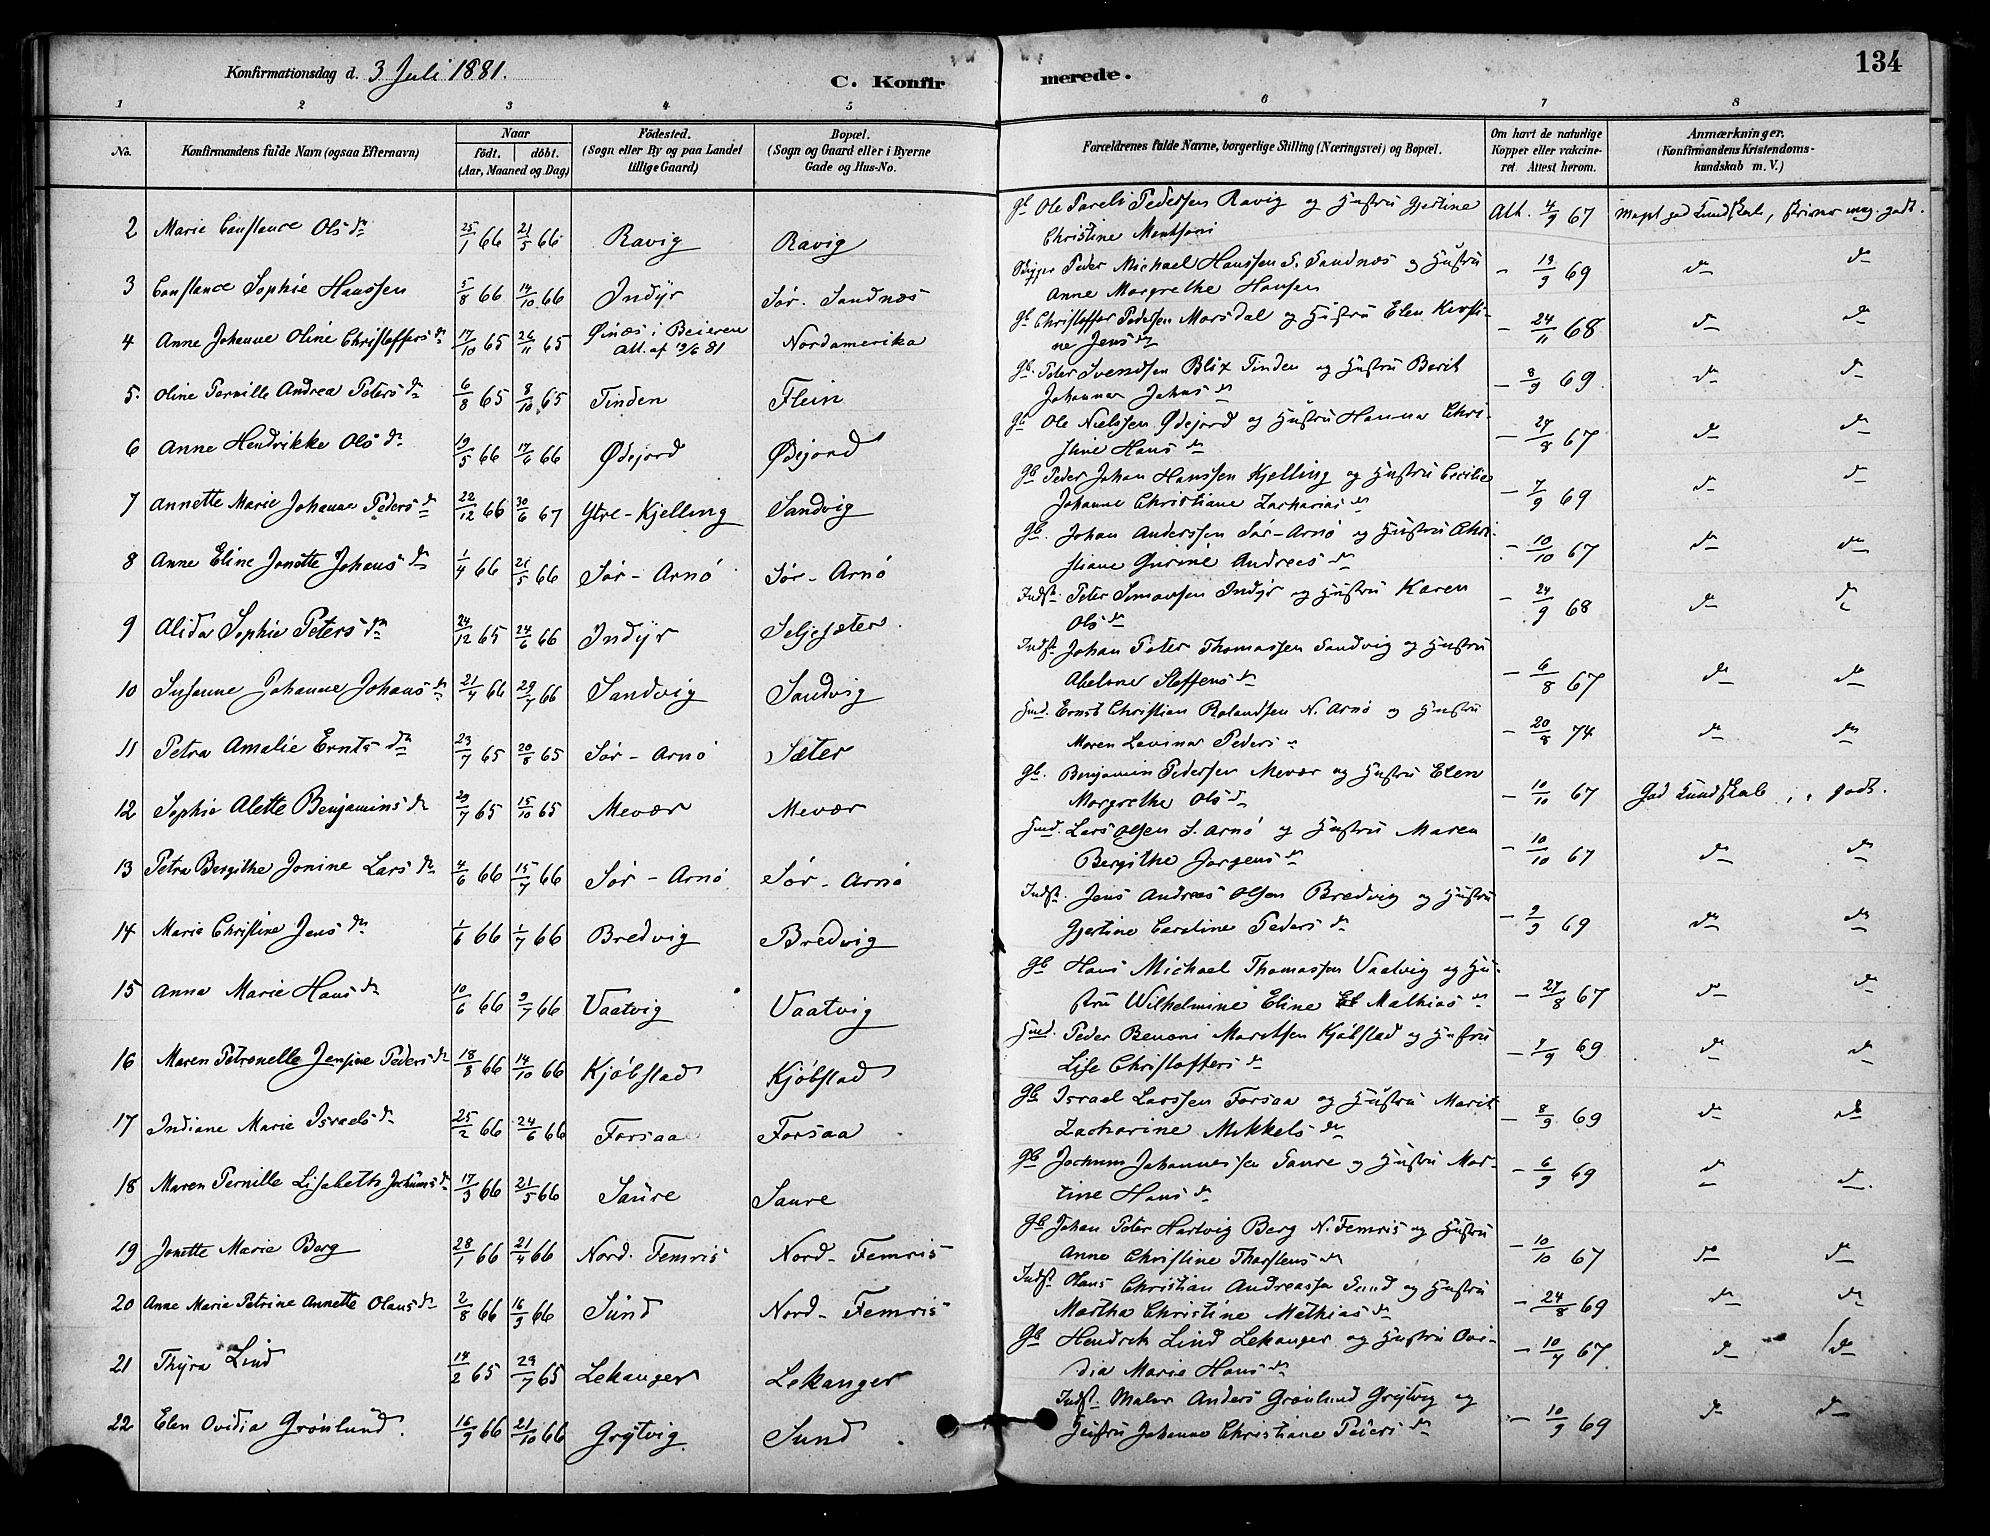 Konfirmationsdag d. 3 Juli 1881.
C. Konfirmerede.
134
1 2 3 4 5 6 7 8
No.
Konfirmandens fulde Navn (ogsaa Efternavn)
Naar
födt. döbt.
(Aar, Maaned og Dag)
Födested.
(Sogn eller By og paa Landet
tillige Gaard)
Bopæl.
(Sogn og Gaard eller i Byerne
Gade og Hus-No.
Forældrenes fulde Navne, borgerlige Stilling (Næringsvei) og Bopæl.
Om havt de naturlige
Kopper eller vakcine-
ret. Attest herom.
Anmærkninger.
(Konfirmandens Kristendoms-
kundskab m. V.)
2 Marie Constance Olsdr 25/1 66 21/5 66 Ravig Ravig Gb Ole Pareli Pedersen Ravig og Hustru Gjertine Att. 4/9 67
Christine Mentsoni
3 Constance Sophie Hanssen 5/8 66 14/10 66 Indyr Sør. Sandnæs Peder Michael Hanssen S. Sandnæs og Hustru - 19/9 69 do do
Anne Margrethe Hansen
4 Anne Johanne Oline Christoffersdr 17/10 65 26/11 65 Øinæs i Beieren Nordamerika Gb Christoffer Pedersen Marsdal og Hustru Elen Kirsti- - 24/11 68 do do
Att. af 19/6 81 ne Jensdr
5 Oline Pernille Andrea Petersdr 6/8 65 8/10 65 Tinden Flein Gb. Peter Svendsen Blix Tinden og Hustru Berit - 8/9 69. do do
Johanna Johnsdr
6 Anne Hendrikke Olsdr 19/5 66 17/6 66 Ødejord Øbejord Gb Ole Nielssen Ødejord og Hustru Hanna Chri- - 27/8 67 do do
stine Hansdr
7 Annette Marie Johanne Pedersdr 22/12 66 30/6 67 Ytre-Kjelling Sandvig Gb Peder Johan Hanssen Kjelling og Hustru Cecilie - 7/9 69 do do
Johanne Christiane Zachariasdr
8 Anne Eline Jonette Johansdr 1/4 66 21/5 66 Sør-Arnö Sør-Arnö Gb. Johan Anderssen Sør-Arnö og Hustru Chri- - 10/10 67 do do
stiane Gurine Andreasdr
9 Alida Sophie Petersdr 24/12 65 24/6 66 Indyr Seljesæter. Indst. Peter Simonsen Indyr og Hustru Karen - 24/9 68 do do
Olsdr
10 Susanne Johanne Johansdr 21/4 66 29/7 66 Sandvig Sandvig Indst. Johan Peter Thomassen Sandvig og Hustru - 6/8 67 do do
Abelone Steffensdr
11 Petra Amalie Erntsdr 23/7 65 20/8 65 Sør-Arnö Sæter Hmd. Ernst Christian Rolandsen N. Arnö og Hustru - 20/8 74 do do
Maren Lovina Pedersdr
12 Sophie Alette Benjaminsdr 29/7 65 15/10 65 Mevær Mevær Gb. Benjamin Pedersen Mevær og Hustru Elen - 10/10 67 God Kundskab, godt.
Margrethe Olsdr
13 Petra Bergithe Jonine Larsdr 4/6 66 15/7 66 Sør-Arnö Sør-Arnö Hmd. Lars Olsen S. Arnö og Hustru Maren - 10/10 67 do do
Bergithe Jørgensdr
14 Marie Christine Jensdr 1/6 66 1/7 66 Bredvig Bredvig Indst. Jens Andreas Olsen Bredvig og Hustru - 9/9 69 do do
Gjertine Caroline Pedersdr
15 Anna Marie Hansdr 10/6 66 9/7 66 Vaatvig Vaatvig Gb Hans Michael Thomassen Vaatvig og Hu- - 27/8 67 do do
stru Wilhelmine Eline Mathiasdr
16 Maren Petronelle Jensine Pedersdr 18/8 66 14/10 66 Kjöbstad Kjöbstad Hmd. Peder Benoni Maretsen Kjöbstad og Hustru - 7/9 69 do do
Lise Christoffersdr
17 Indiane Marie Israelsdr 25/2 66 24/6 66 Forsaa Forsaa Gb Israel Larssen Forsaa og Hustru Marit - 8/9 69 do do
Zacharine Mikkelsdr
18 Maren Pernille Lisabeth Jochumsdr 17/3 66 21/5 66 Saure Saure Gb Jochum Johannessen Saure og Hustru Mar- - 6/9 69 do do
tine Hansdr
19 Jonette Marie Berg 28/1 66 21/4 66 Nord. Femris Nord-Femris Gb Johan Peter Hartvig Berg N. Femris og Hustru - 10/10 67 do do
Anne Christine Thorstensdr
20 Anne Marie Petrine Annette Olausdr 2/8 66 16/9 66 Sund Nord-Femris Indst. Olaus Christian Andreassen Sund og Hustru - 24/8 69 do do
Martha Christine Mathiasdr
21 Thyra Lind 14/2 65 29/7 65 Lekanger Lekanger Gb Hendrik Lind Lekanger og Hustru Ovi- - 10/7 67. do do
dia Marie Hansdr
22 Elen Ovidia Grönlund. 16/9 66 21/10 66 Grytvig. Sund Indst. Maler Anders Grönlund Grytvig og - 10/9 69 do do
Hustru Johanne Christiane Petersdr